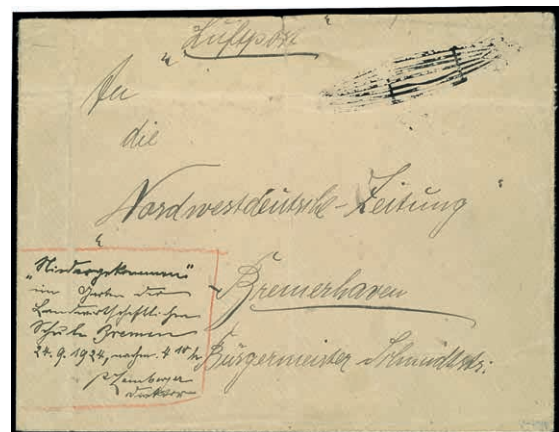 "Luftpost"
An
die
Nordwestdeutsche-Zeitung
Bremerhaven
Bürgermeister-Schmidtstr.
"Niedergekommen"
im Garten der
Landwirtschaftlichen
Schule Bremen
24.9.1924, nachm. 4 10
Direktor